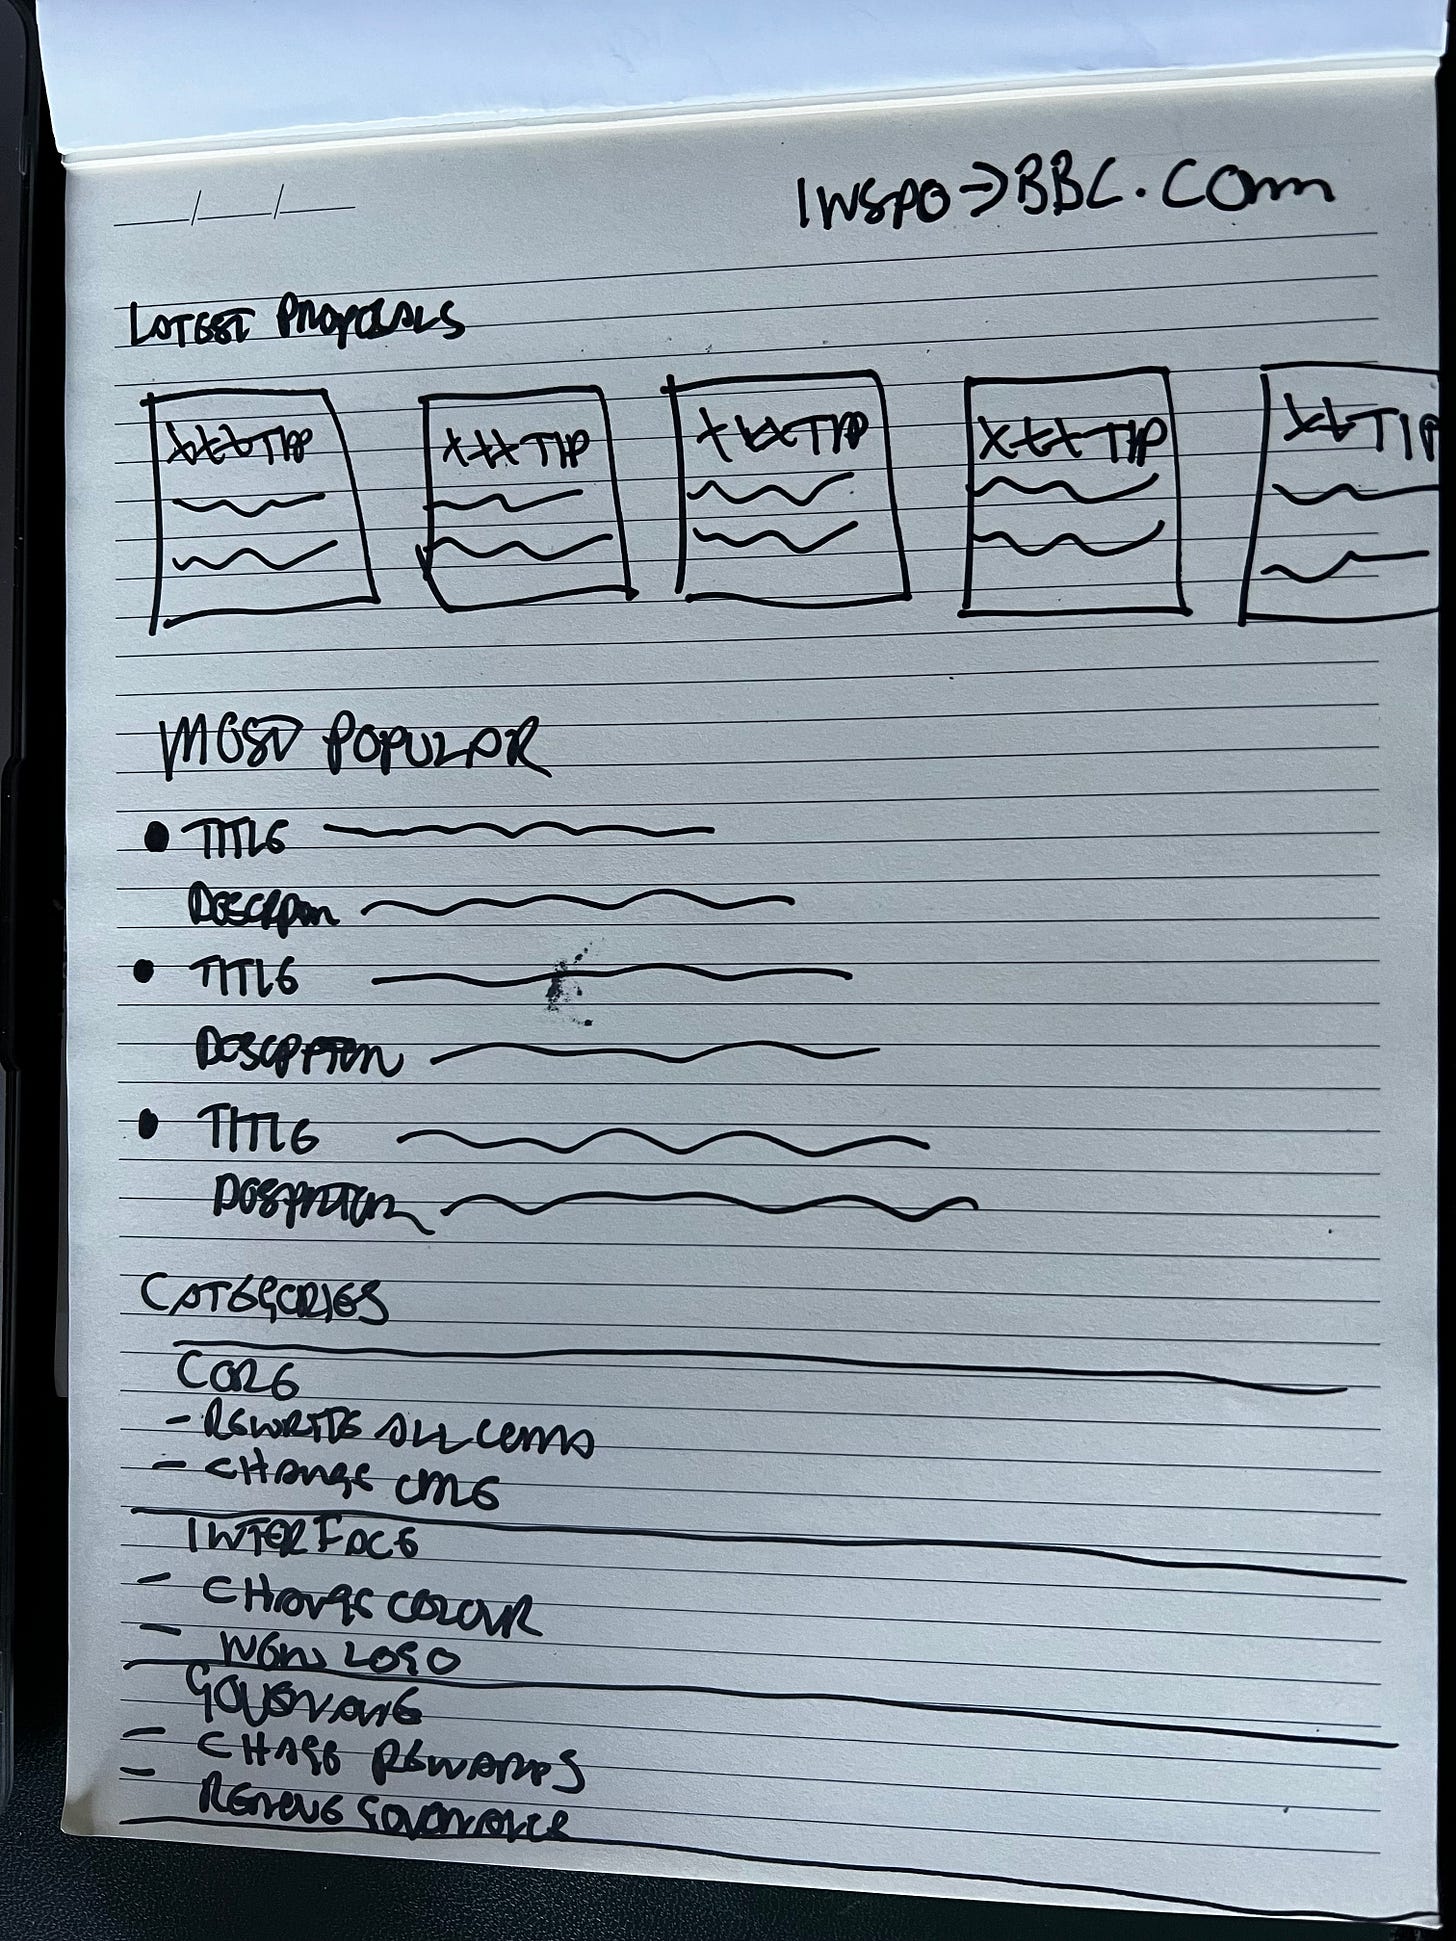 INSPO → BBC.COM
LATEST PROPOSALS
XXX TIP XXX TIP XXX TIP XXX TIP XX TIP
MOST POPULAR
• TITLE
DESCRPTON
• TITLE
DESCRPTION
• TITLE
CATEGORIES
CORE
- REWRITE ALL
- CHANGE
INTERFACE
- CHANGE COLOUR
- NEW LOGO
GOVERNANCE
- CHANGE REWARDS
- REMOVE GOVERNANCE